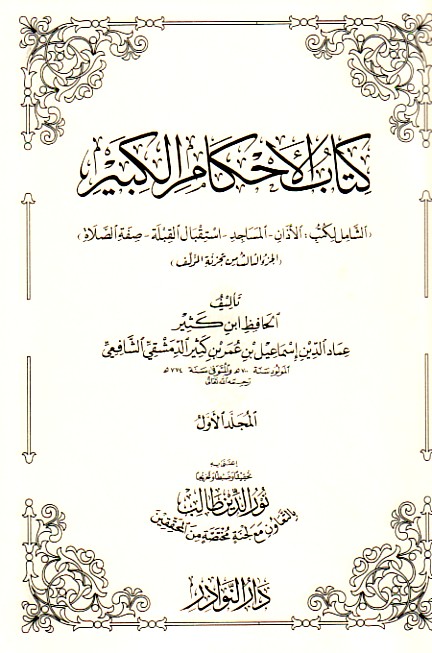 كتاب الأحكام الكبير
(الشامل لكتب : الأذان - المساجد - استقبال القبلة - صفة الصلاة)
(الجزء الثالث من تجزئة المؤلف)
تأليف
الحافظ ابن كثير
عماد الدين إسماعيل بن عمر بن كثير الدمشقي الشافعي
المولود سنة ٧٠٠ه والمتوفى سنة ٧٧٤ه
رحمه الله تعالى
المجلد الأول
اعتنى به
تحقيقا وضبطا وتخريجا
نور الدين طالب
بالتعاون مع لجنة مختصة من المحققين
دار النوادر